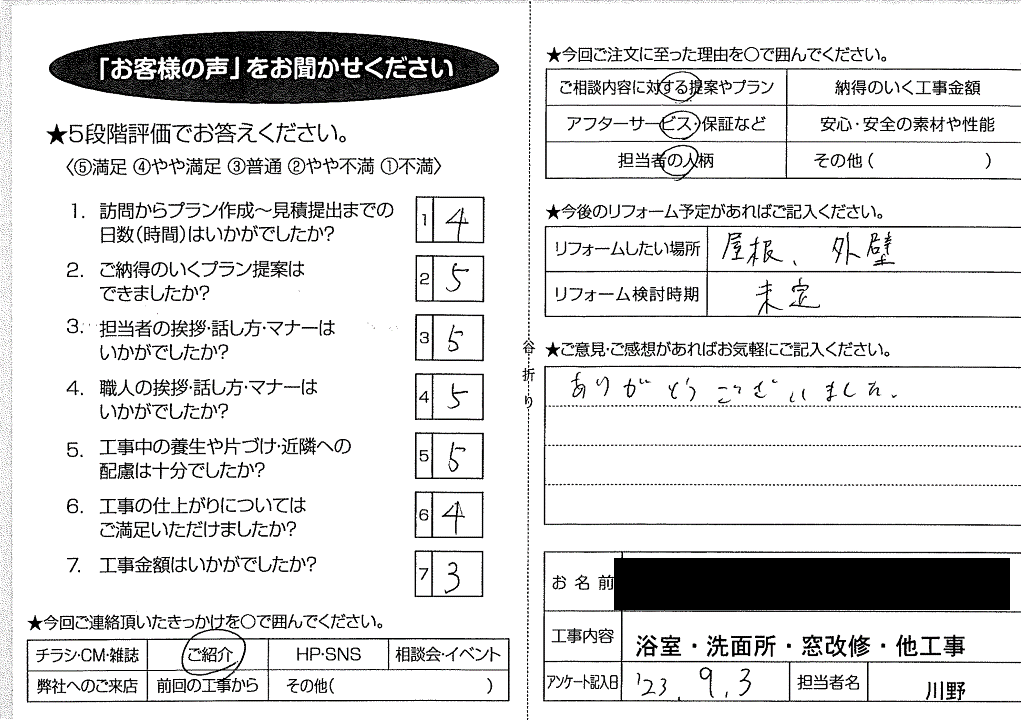 「お客様の声」をお聞かせください
★5段階評価でお答えください。
〈⑤満足 ④やや満足 ③普通 ②やや不満 ①不満〉
1. 訪問からプラン作成~見積提出までの
日数(時間)はいかがでしたか?
1 4
2. ご納得のいくプラン提案は
できましたか?
2 5
3. 担当者の挨拶・話し方・マナーは
いかがでしたか?
3 5
4. 職人の挨拶・話し方・マナーは
いかがでしたか?
4 5
5. 工事中の養生や片づけ・近隣への
配慮は十分でしたか?
5 5
6. 工事の仕上がりについては
ご満足いただけましたか?
6 4
7. 工事金額はいかがでしたか?
7 3
★今回ご連絡頂いたきっかけを○で囲んでください。
チラシ・CM・雑誌 ご紹介 HP・SNS 相談会・イベント
弊社へのご来店 前回の工事から その他( )
谷折り
★今回ご注文に至った理由を○で囲んでください。
ご相談内容に対する提案やプラン 納得のいく工事金額
アフターサービス・保証など 安心・安全の素材や性能
担当者の人柄 その他( )
★今後のリフォーム予定があればご記入ください。
リフォームしたい場所 屋根、外壁
リフォーム検討時期 未定
★ご意見・ご感想があればお気軽にご記入ください。
ありがとうございました.
お名前
工事内容 浴室・洗面所・窓改修・他工事
アンケート記入日 '23.9.3 担当者名 川野